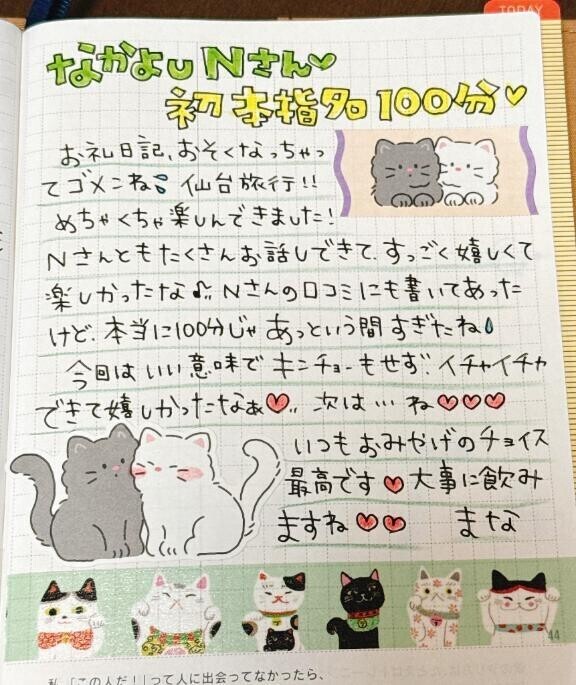 TODAY
なかよしNさん♡
初本指名100分♡
お礼日記、おそくなっちゃっ
てゴメンね 仙台旅行!!
めちゃくちゃ楽しんできました!
Nさんともたくさんお話しできて、すっごく嬉しくて
楽しかったな♫ Nさんの口コミにも書いてあった
けど、本当に100分じゃあっという間すぎたね
今回はいい意味でキンチョーもせず、イチャイチャ
できて嬉しかったなぁ♡‥ 次は…ね♡♡♡
いつもおみやげのチョイス
最高です♡大事に飲み
ますね♡♡ まな
44
私、「この人だ!」って人に出会ってなかったら、